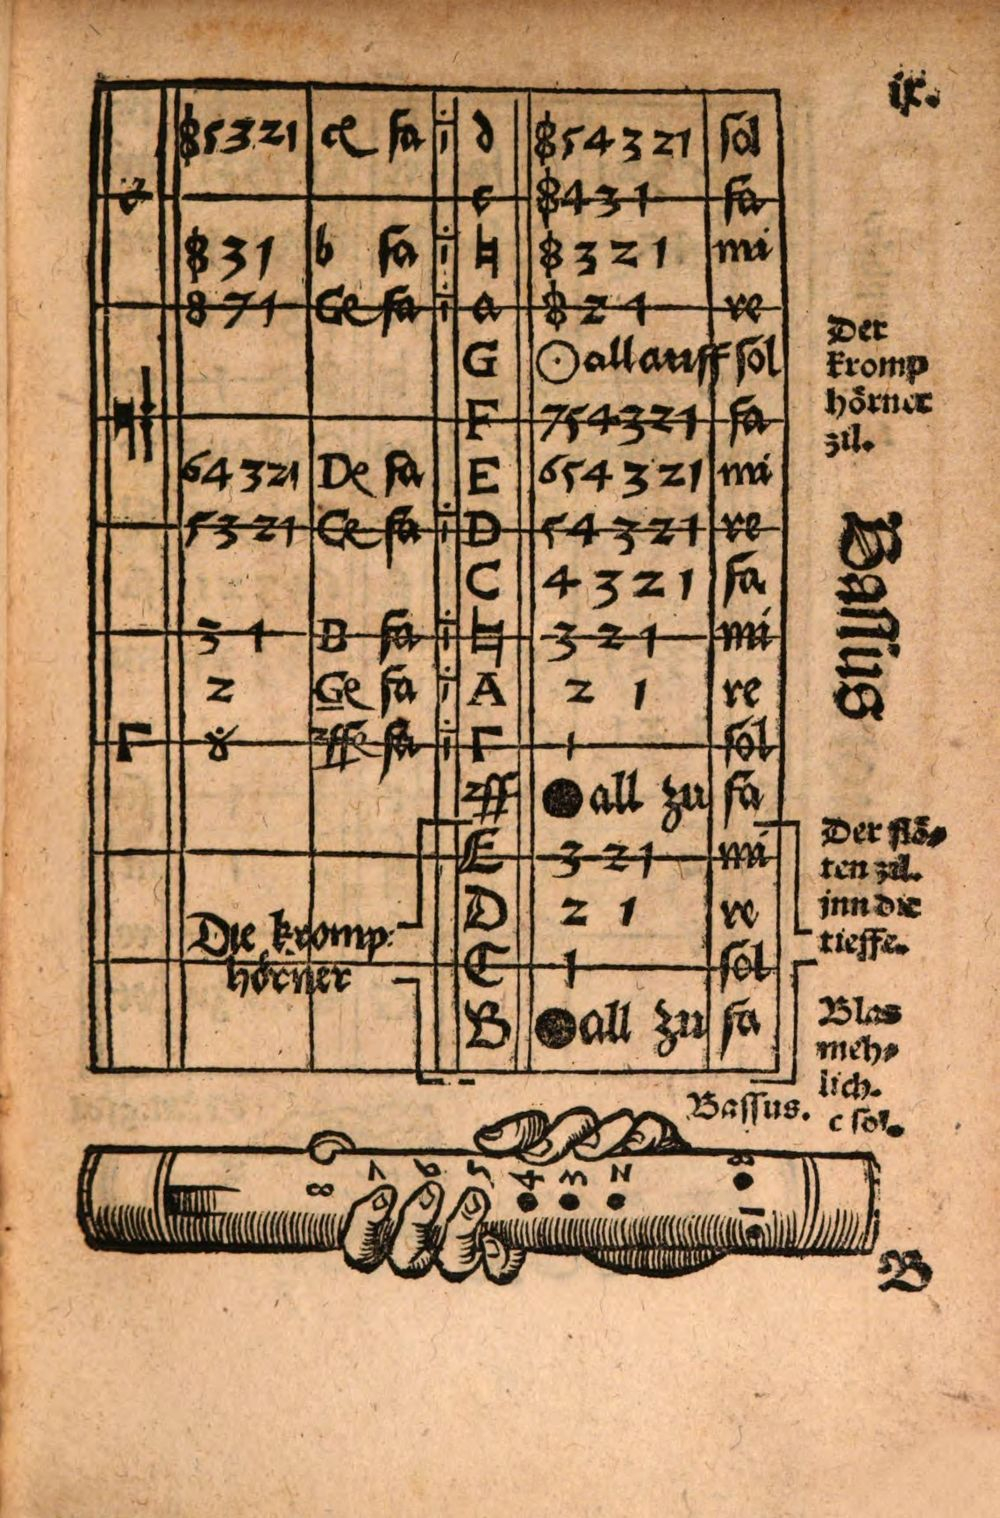 ix.
85321 ce fa i d 854321 sol
c 8431 fa
831 b fa i ♮ 8321 mi
871 Ge fa i a 821 re
G ☉ all auff sol
F 754321 fa
64321 De fa E 654321 mi
5321 Ce fa i D 54321 re
C 4321 fa
31 B fa i ♮ 321 mi
2 Ge fa i A 21 re
8 ff fa i Γ 1 sol
Γ
ff ● all zu fa
E 321 mi
D 21 re
C 1 sol
B ● all zu fa
Die kromp
hörner
Der
kromp
hörner
zil.
Bassus
Der flö⸗
ten zil.
jnn die
tieffe.
Blas
meh⸗
lich.
c sol.
Bassus.
8 7 6 5 4 3 2 8
1
B